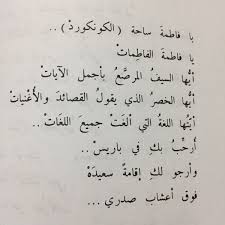 يا فاطمةَ ساحة (الكونكورد)..
يا فاطمةَ الفاطِماتْ
أيُّها السيفُ المرصَّعُ بأجملِ الآياتْ
أيُّها الخصرُ الذي يقولُ القصائدَ والأُغْنياتْ
أيّتُها اللغةُ التي ألغَتْ جميعَ اللغاتْ..
أُرحِّبُ بكِ في باريسْ..
وأرجو لكِ إقامةً سعيدَهْ
فوق أعشاب صدري...